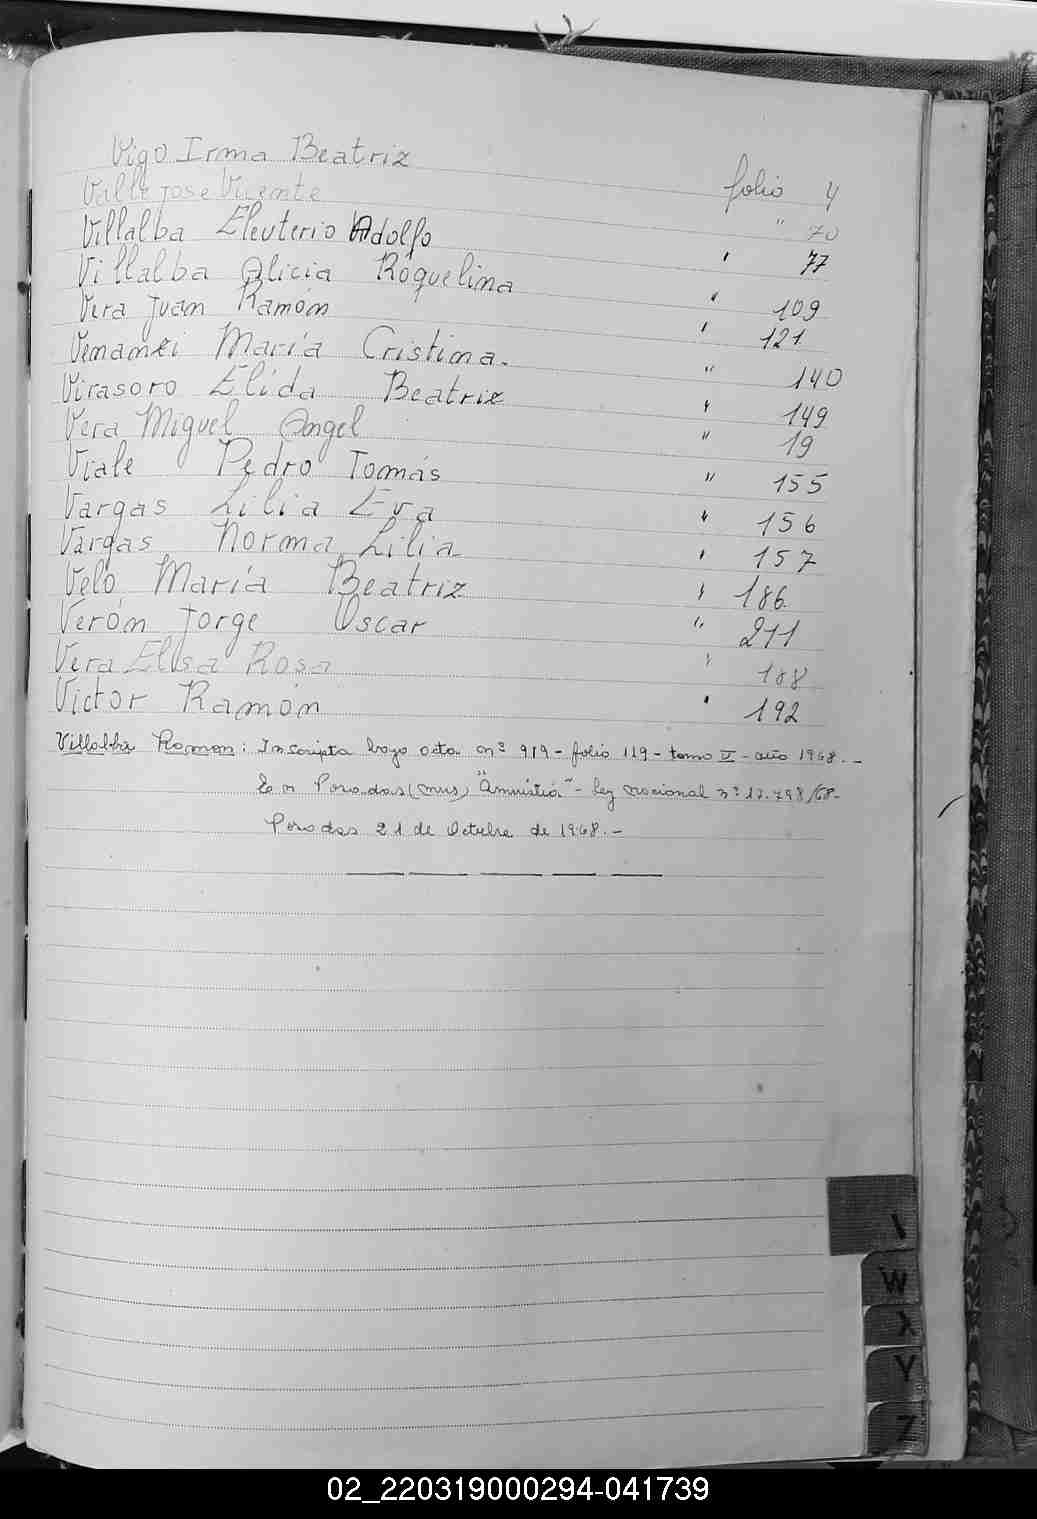 Vigo Irma Beatriz folio 4
Valle Jose Vicente " 70
Villalba Eleuterio Adolfo " 77
Villalba Alicia Roquelina " 109
Vera Juan Ramón " 121
Venamei María Cristina. " 140
Virasoro Elida Beatriz " 149
Vera Miguel Angel " 19
Viale Pedro Tomás " 155
Vargas Lilia Eva " 156
Vargas Norma Lilia " 157
Veló María Beatriz " 186
Verón Jorge Oscar " 211
Vera Elisa Rosa " 188
Victor Ramón " 192
Villalba Ramon: Inscripta bajo acta nº 919 - folio 119 - tomo II - año 1968. -
Posadas (mns) "Amnistia" - ley nacional nº 17.798/68-
Posadas 21 de Octubre de 1968. -
W
X
Y
Z
02_220319000294-041739